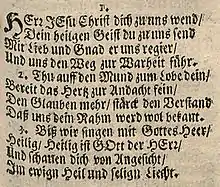 1.
HErr JEsu Christ dich zu uns wend/
Dein heilgen Geist du zu uns send
Mit Lieb und Gnad er uns regier/
Und uns den Weg zur Warheit führ.
2. Thu auff den Mund zum Lobe dein/
Bereit das Hertz zur Andacht fein/
Den Glauben mehr/ stärck den Verstand
Daß uns dein Nahm werd wol bekant.
3. Biß wir singen mit Gottes Heer/
Heilig/ Heilig ist GOtt der HErr/
Und schauen dich von Angesicht/
Jm ewign Heil und selign Liecht.